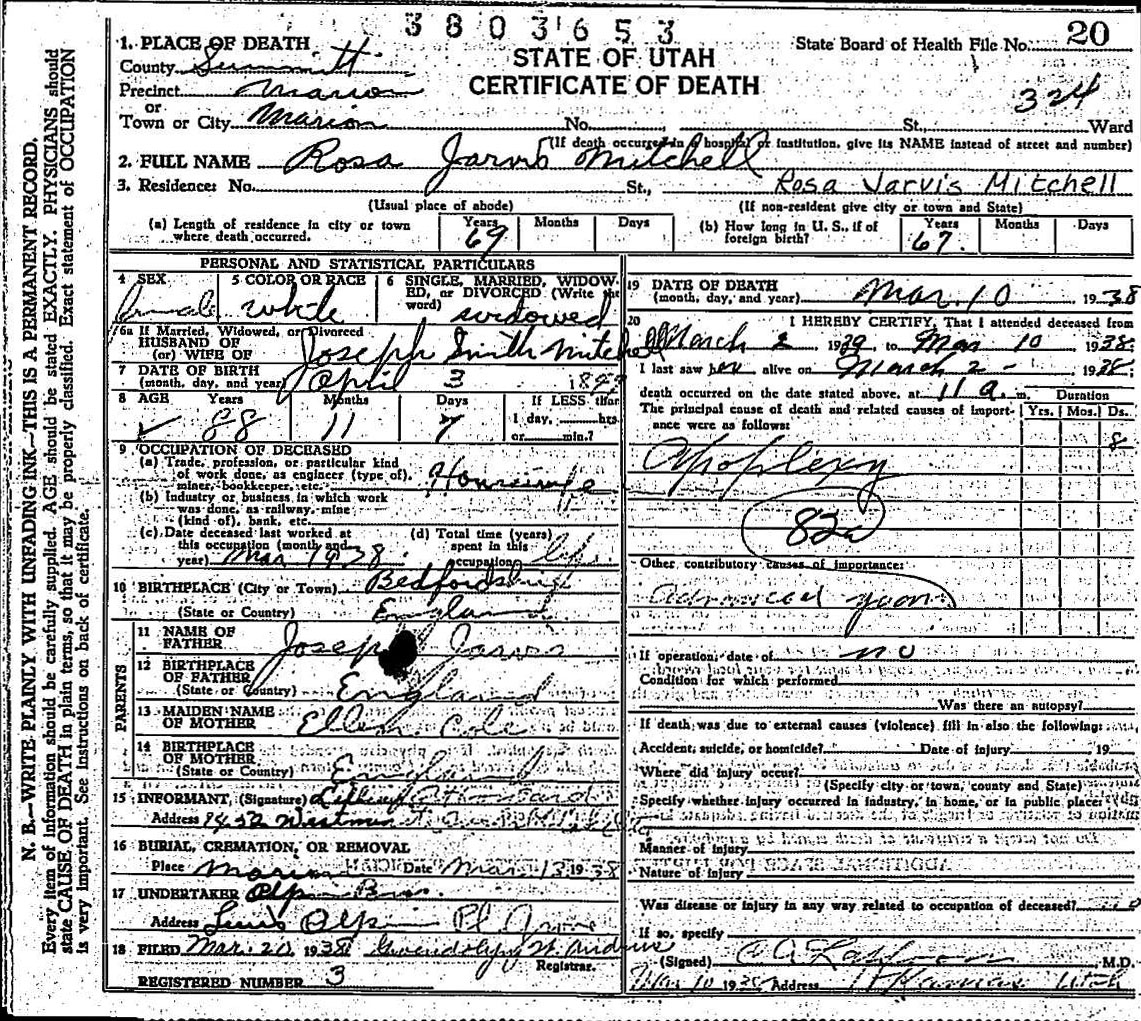 3803653
1. PLACE OF DEATH
STATE OF UTAH
CERTIFICATE OF DEATH
State Board of Health File No. 20
324
County Summitt
Precinct Marion
or
Town or City Marion No. St., Ward
(If death occurred in a hospital or institution, give its NAME instead of street and number)
2. FULL NAME Rosa Jarvis Mitchell
3. Residence: No. St., Rosa Jarvis Mitchell
(Usual place of abode) (If non-resident give city or town and State)
(a) Length of residence in city or town where death occurred. Years 69 Months Days
(b) How long in U. S., if of foreign birth? Years 67. Months Days
PERSONAL AND STATISTICAL PARTICULARS
4 SEX female
5 COLOR OR RACE white
6 SINGLE, MARRIED, WIDOWED, or DIVORCED (Write the word) widowed
6a If Married, Widowed, or Divorced
HUSBAND OF
(or) WIFE OF Joseph Smith Mitchell
7 DATE OF BIRTH
(month, day, and year) April 3 1849
8 AGE Years 88 Months 11 Days 7 If LESS than 1 day, hrs. or min.?
9 OCCUPATION OF DECEASED
(a) Trade, profession, or particular kind
of work done, as engineer (type of),
miner, bookkeeper, etc. Housewife
(b) Industry or business in which work
was done, as railway, mine
(kind of), bank, etc.
(c) Date deceased last worked at
this occupation (month and
year) Mar 1938
(d) Total time (years)
spent in this
occupation life
10 BIRTHPLACE (City or Town) Bedfordshire
(State or Country) England
PARENTS
11 NAME OF
FATHER Joseph Jarvis
12 BIRTHPLACE
OF FATHER
(State or Country) England
13 MAIDEN NAME
OF MOTHER Ellen Cole
14 BIRTHPLACE
OF MOTHER
(State or Country) England
15 INFORMANT, (Signature)
Address
16 BURIAL, CREMATION, OR REMOVAL
Place Marion Date Mar. 13 1938
17 UNDERTAKER Olpin Bros.
Address Olpin Pl
18 FILED Mar. 20, 1938 Gwendolyn
Registrar.
REGISTERED NUMBER 3
19 DATE OF DEATH
(month, day, and year) Mar. 10 1938
20 I HEREBY CERTIFY, That I attended deceased from
March 2 19 to Mar 10 1938
I last saw her alive on March 2 - 1938
death occurred on the date stated above, at 11 a. m. Duration
The principal cause of death and related causes of importance were as follows: Yrs. Mos. Ds.
8
Apoplexy
82a
Other contributory causes of importance:
Advanced years
If operation, date of no
Condition for which performed
Was there an autopsy?
If death was due to external causes (violence) fill in also the following:
Accident, suicide, or homicide? Date of injury 19
Where did injury occur?
(Specify city or town, county and State)
Specify whether injury occurred in industry, in home, or in public place:
Manner of injury
Nature of injury
Was disease or injury in any way related to occupation of deceased? no
If so, specify
(Signed) M.D.
Mar 10 19 Address Kamas Utah
N. B.—WRITE PLAINLY WITH UNFADING INK—THIS IS A PERMANENT RECORD.
Every item of information should be carefully supplied. AGE should be stated EXACTLY. PHYSICIANS should
state CAUSE OF DEATH in plain terms, so that it may be properly classified. Exact statement of OCCUPATION
is very important. See instructions on back of certificate.